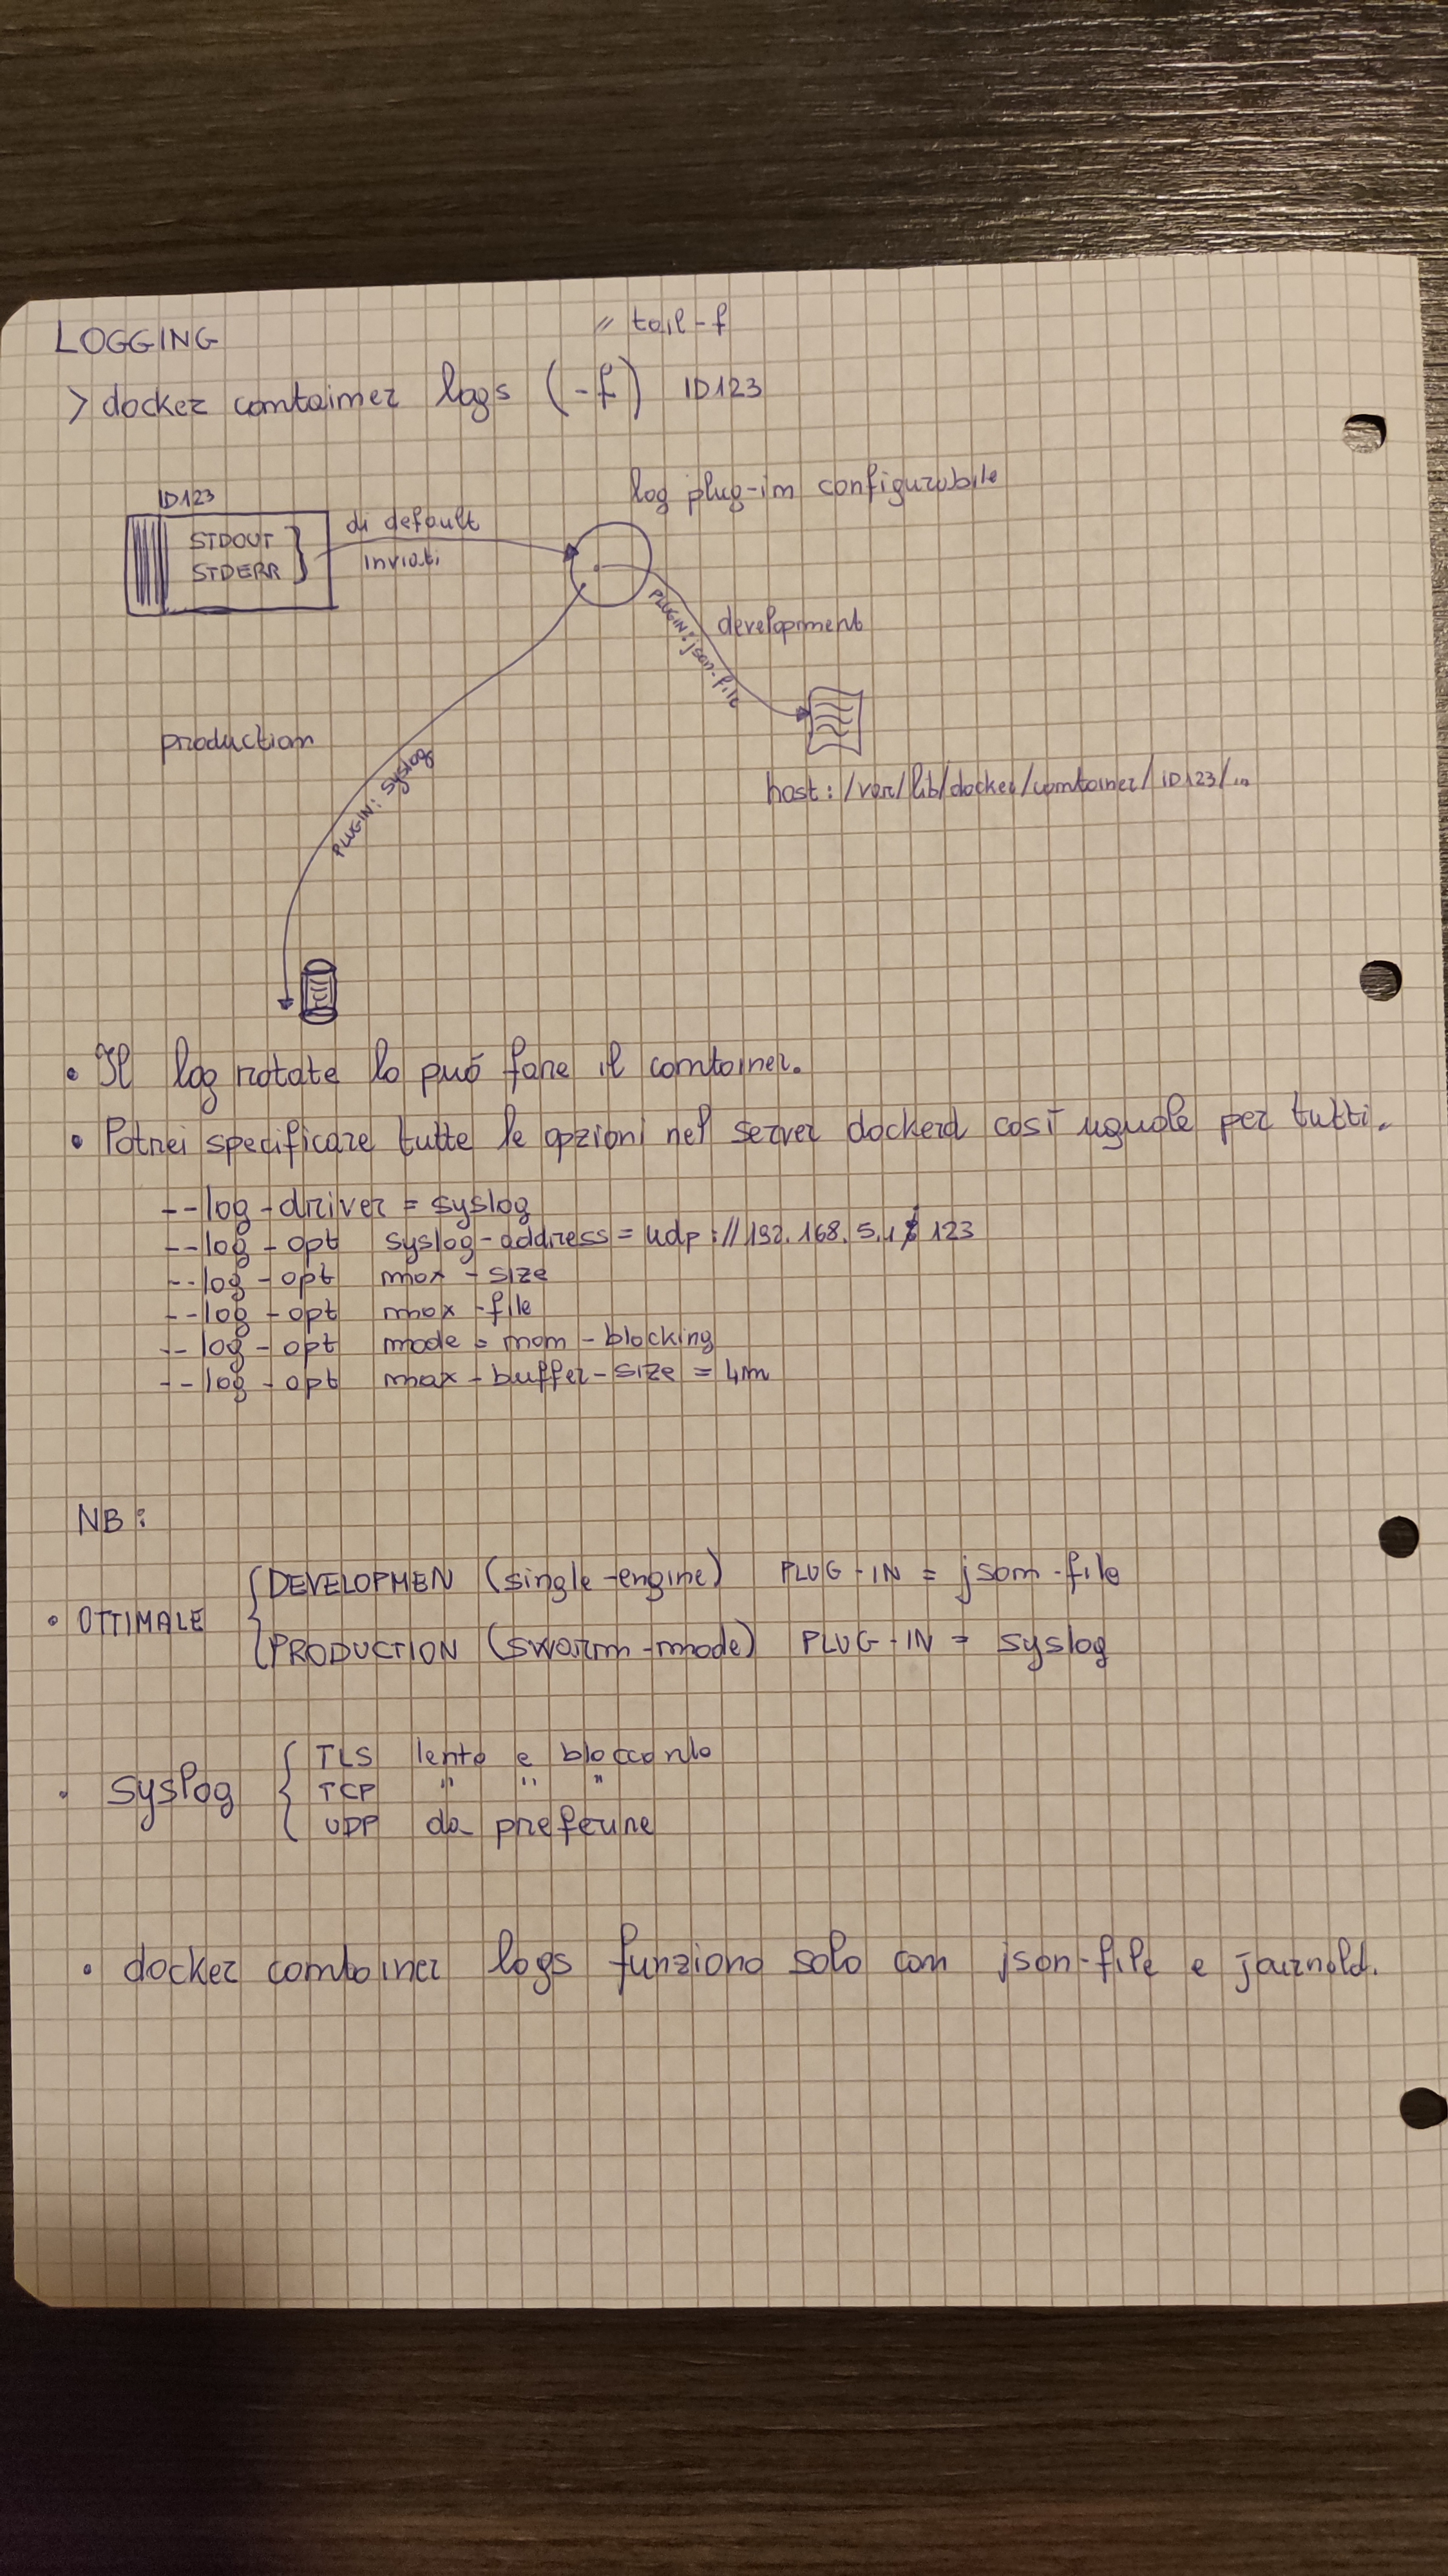 LOGGING
// tail -f
> docker container logs (-f) ID123
log plug-in configurabile
ID123
STDOUT
STDERR
di default
inviati
PLUGIN: json-file
development
production
PLUGIN: syslog
host: /var/lib/docker/container/ID123/...
• Il log rotate lo può fare il container.
• Potrei specificare tutte le opzioni nel server dockerd così uguale per tutti.
--log-driver = syslog
--log-opt syslog-address = udp://192.168.5.1 123
--log-opt max-size
--log-opt max-file
--log-opt mode = non-blocking
--log-opt max-buffer-size = 4m
NB:
• OTTIMALE
DEVELOPMEN (single-engine) PLUG-IN = json-file
PRODUCTION (swarm-mode) PLUG-IN = syslog
• syslog
TLS lento e bloccante
TCP " " "
UDP da preferire
• docker container logs funziona solo con json-file e journald.